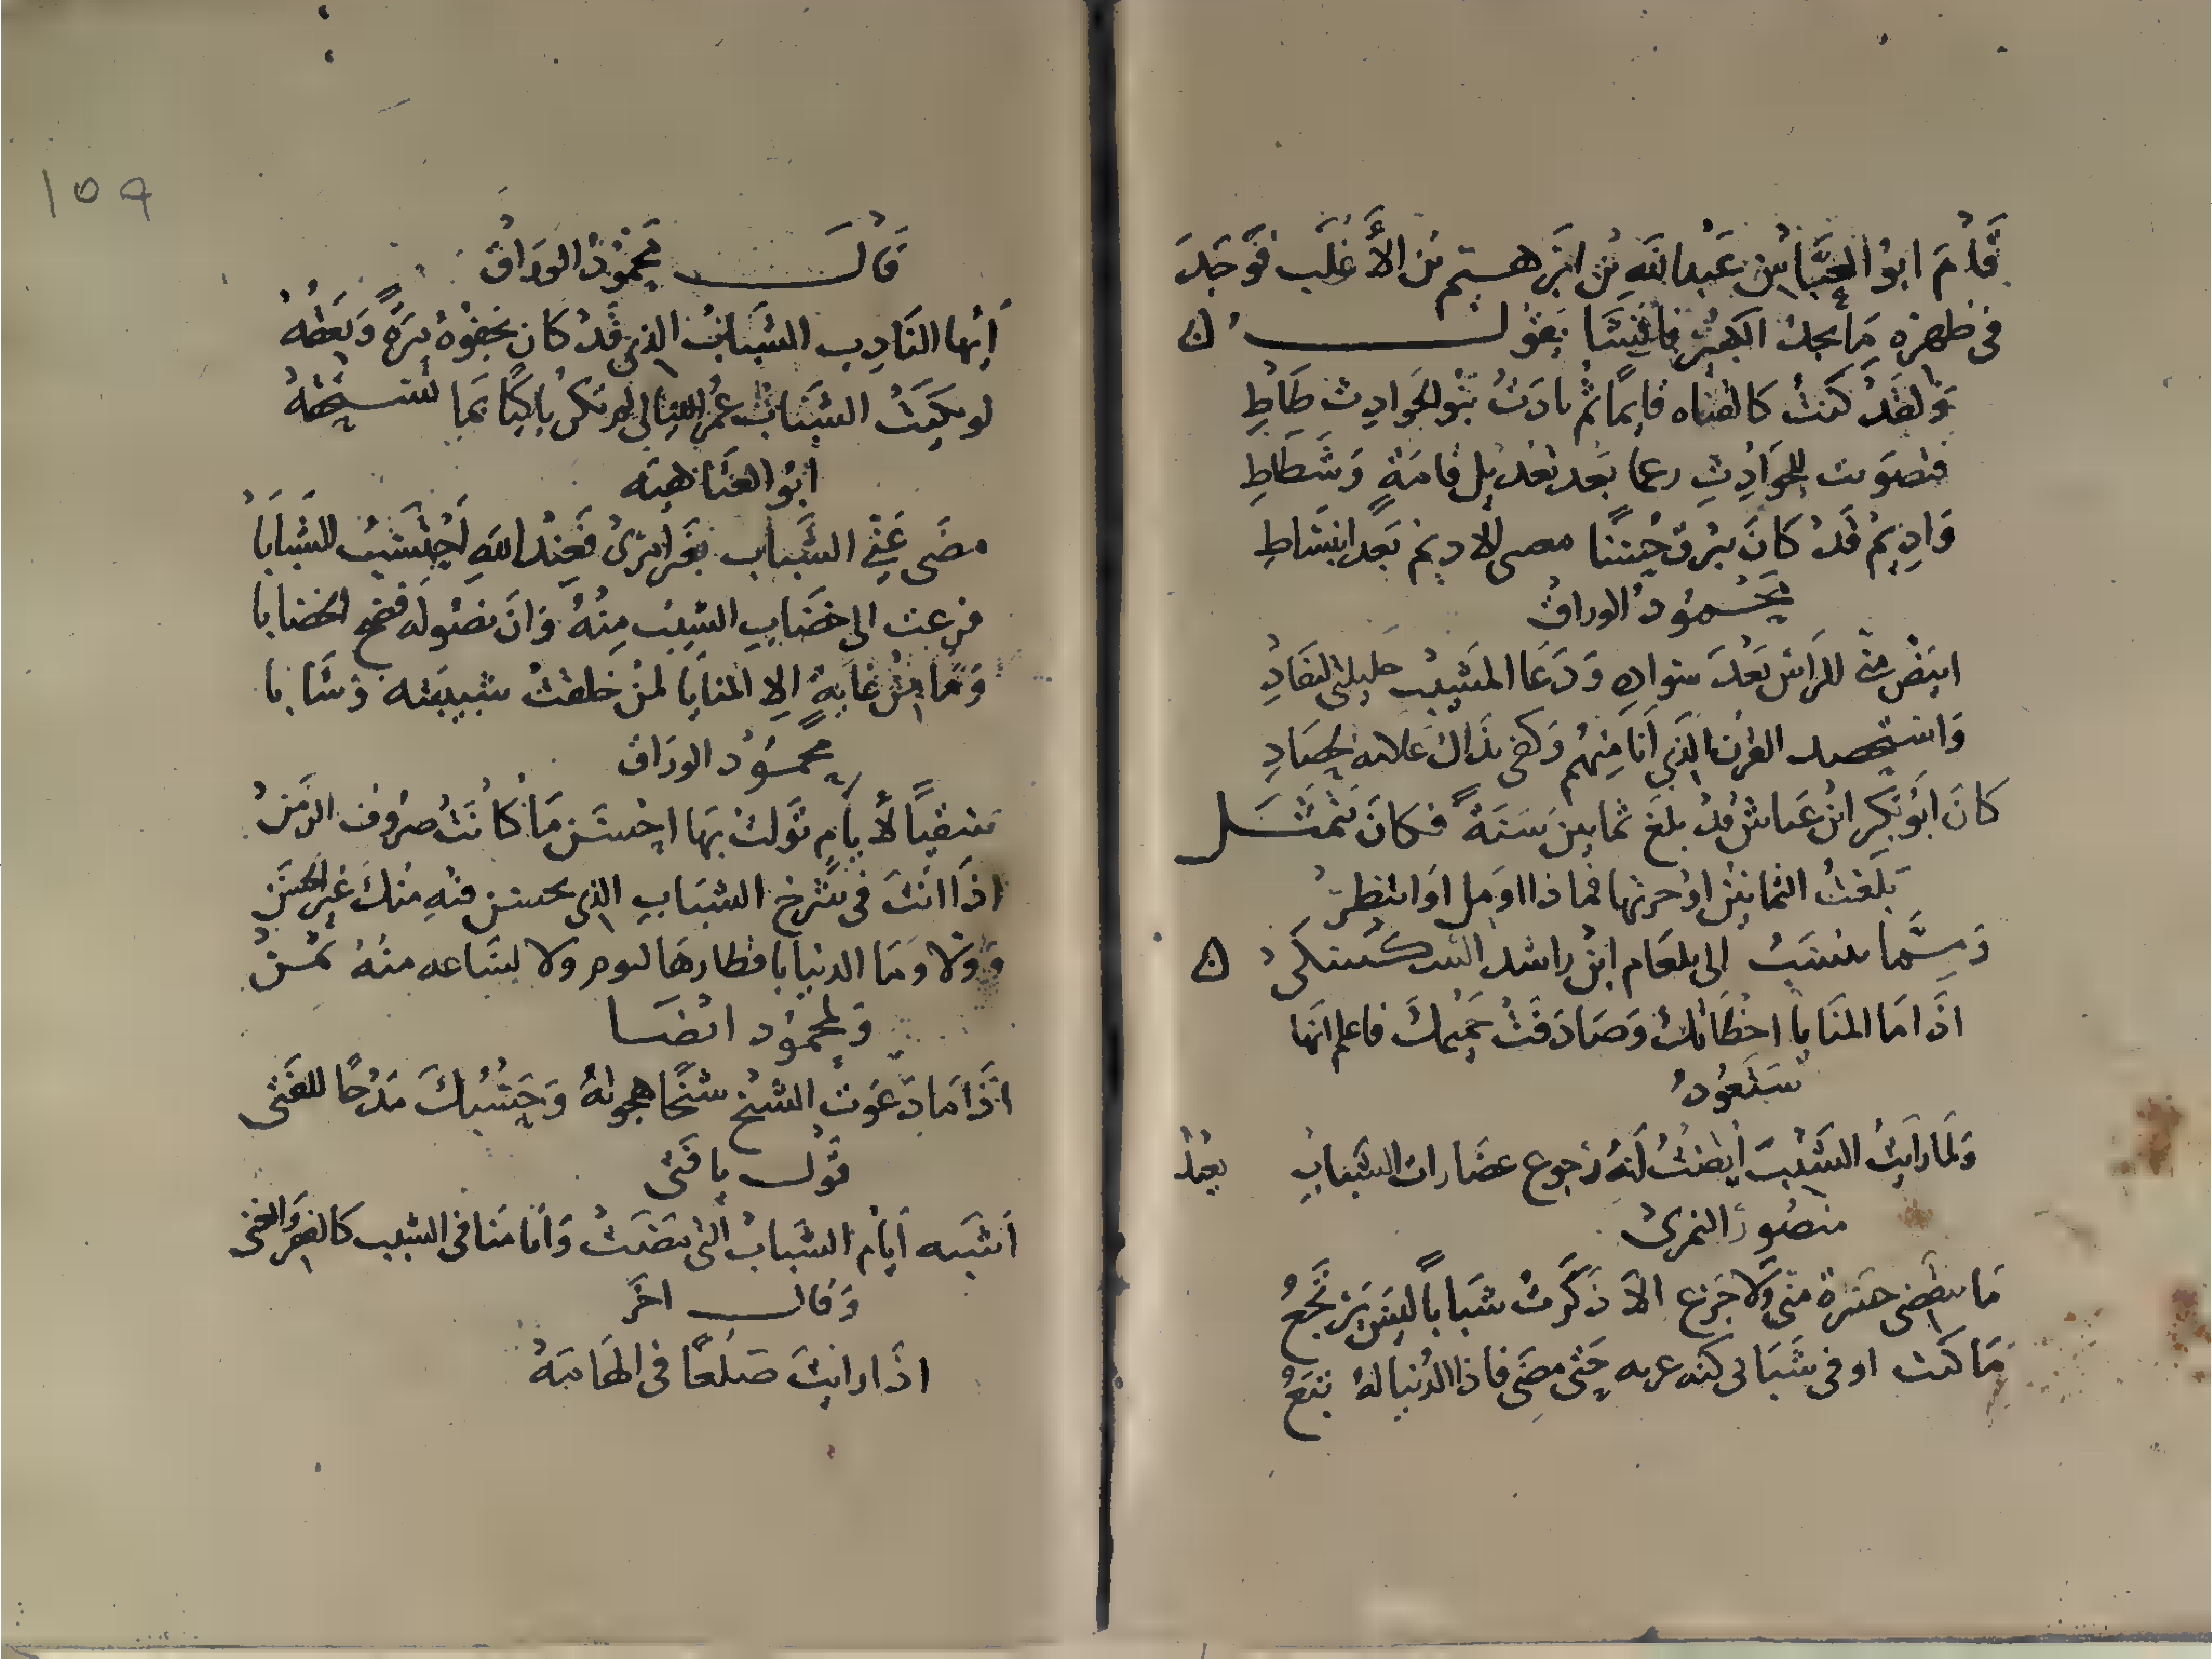 قَدِمَ ابوُ العَبَّاسِ بن عَبدالله بن ابرَهيم بن الأَغلَب فَوَجَدَ
في ظهره مَا يجدُ الكبيرُ فانشَا يَقوُل
وَلقَد كنتُ كالقناه قايمًا ثم بادَتْ بنوُ الحَوادِث طَاطِ
للحَوادِثِ بَعد بَعد قامَةٍ وَشَطَاطِ
وَادِيمٌ قَدْ كَانَ يبرق حُسنًا الاديم بَعد انبسَاطِ
محمُودُ الوراقُ
ابيَضَّ منّى الرَاس بَعْدَ سَوادِ وَدَعَا المَشيبُ حليلتى لبعَادِ
وَاستحصد القرن الذي اَنَا مِنهُم وَكفى بذاك علامه لحصَادِ
كانَ ابوُ بَكر ابن عَياش قد بلغَ ثمانينَ سَنَةً فكانَ يَتمثل
بَلغتُ الثمانينَ او جزتها فماذا اُؤمل او انتظرُ
وَممَّا ينسَبُ الى بلعَام ابن راشد السكسكى
اذَا مَا المنَايا اخطَاتك وَصَادَفَتْ حَمِيمكَ فاعلم انَها
سَتَعوُدُ
وَلمَا رَايتُ الشَيْبَ ايقنتُ اَنهُ رجوع الشبَابِ بعيدُ
منصوُر النمرىُ
مَا تنقضى حسرة منّى وَلا جَزع الاّ ذَكَرتُ شَبَاباً ليسَ يَرتجعُ
مَا كنت اوفى شَبَابى كنه حَتى مضَى فاذا الدُنيا لهُ تبَعُ
١٥٩
قَالَ محمُودُ الورَاقُ
اَيُها النَادِب الشبَابَ الذي قَدْ كَان يجفوُهُ مرَةً وَيَعقُهُ
لو بكيَتَ الشبَابَ عُمر الليَالى لم تكن باكيًا بمَا تستحقهُ
ابوُ العتَاهيَه
مضَى عَنِّي الشَباب بغَير امرىْ فَعِنْدَ اللهِ اَحتَسِبُ الشَبَابَا
فزعت الى خضَابِ الشيب مِنْهُ وَانَ نصُوله فضح الخضابا
وَمَا مِنْ غايهٍ اِلا المنايَا لمنْ خلقتْ شبيبَته وَشَابا
محمُود الورَاق
سَقيًا لأيامٍ توَلتْ بهَا احسَن مَا كانَتْ صرُوف الزمَنْ
اذَا انتَ فى شرخ الشبَابِ الذي يحسن فيهِ منكَ غير الحسَنِ
وَلا وَمَا الدنيا باقطارهَا ليوم ولا لسَاعه منهُ ثمنْ
وَلمحمُود ايضَا
اذَا مَا دَعَوتَ الشيخ شيخًا هجوتهُ وَحَسْبُكَ مَدْحًا للفَتى
قوْل يا فَتى
اَشَبه اَيام الشبابُ التى مضَتْ وَاَيامنا فى الشيب كالفقر والغنى
وَقال اخَر
اذَا رايتَ صَلعًا فى الهَامَهْ